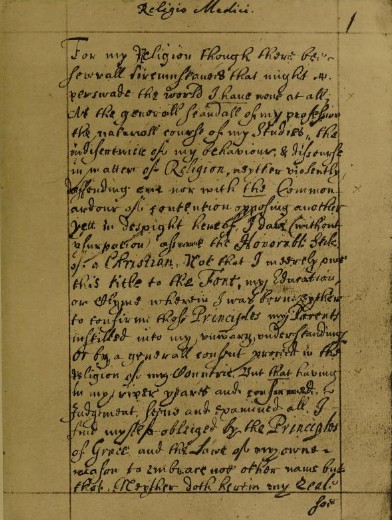 Religio Medici.
1
For my Religion though there bee
severall Circumstances that might
perswade the world I have none at all,
As the generall scandall of my profession
the naturall course of my Studies, the
indifferencie of my behaviour, & discourse
in matters of Religion, neither violently
deffending one nor with the Common
ardour of contention opposing another
yett in despight hereof I dare (without
usurpation) assume the Honorable stile
of a Christian. Not that I meerely owe
this title to the Font, my Education
or Clyme wherein I was borne eyther
to confirme those Principles my Parents
instilled into my unwary understanding
or by a generall consent proceed in the
Religion of my Countrie. But that having
in my riper yeares and confirmed
Judgement, seene and examined all, I
find my selfe obliged by the Principles
of Grace, and the Lawe of my owne
reason to embrace noe other name but
that. Neyther doth herein my zeale
soe